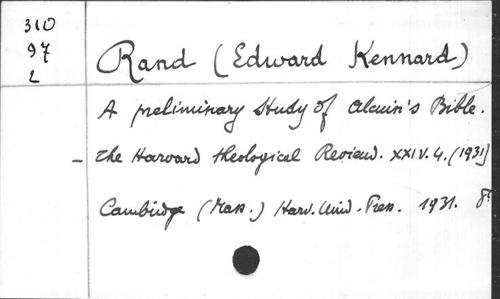 310
97
2
Rand (Edward Kennard)
A preliminary Study of Alcuin's Bible.
- The Harvard theological Review. XXIV. 4. (1931)
Cambridge (Mass.) Harv. Univ. Press. 1931. 8°